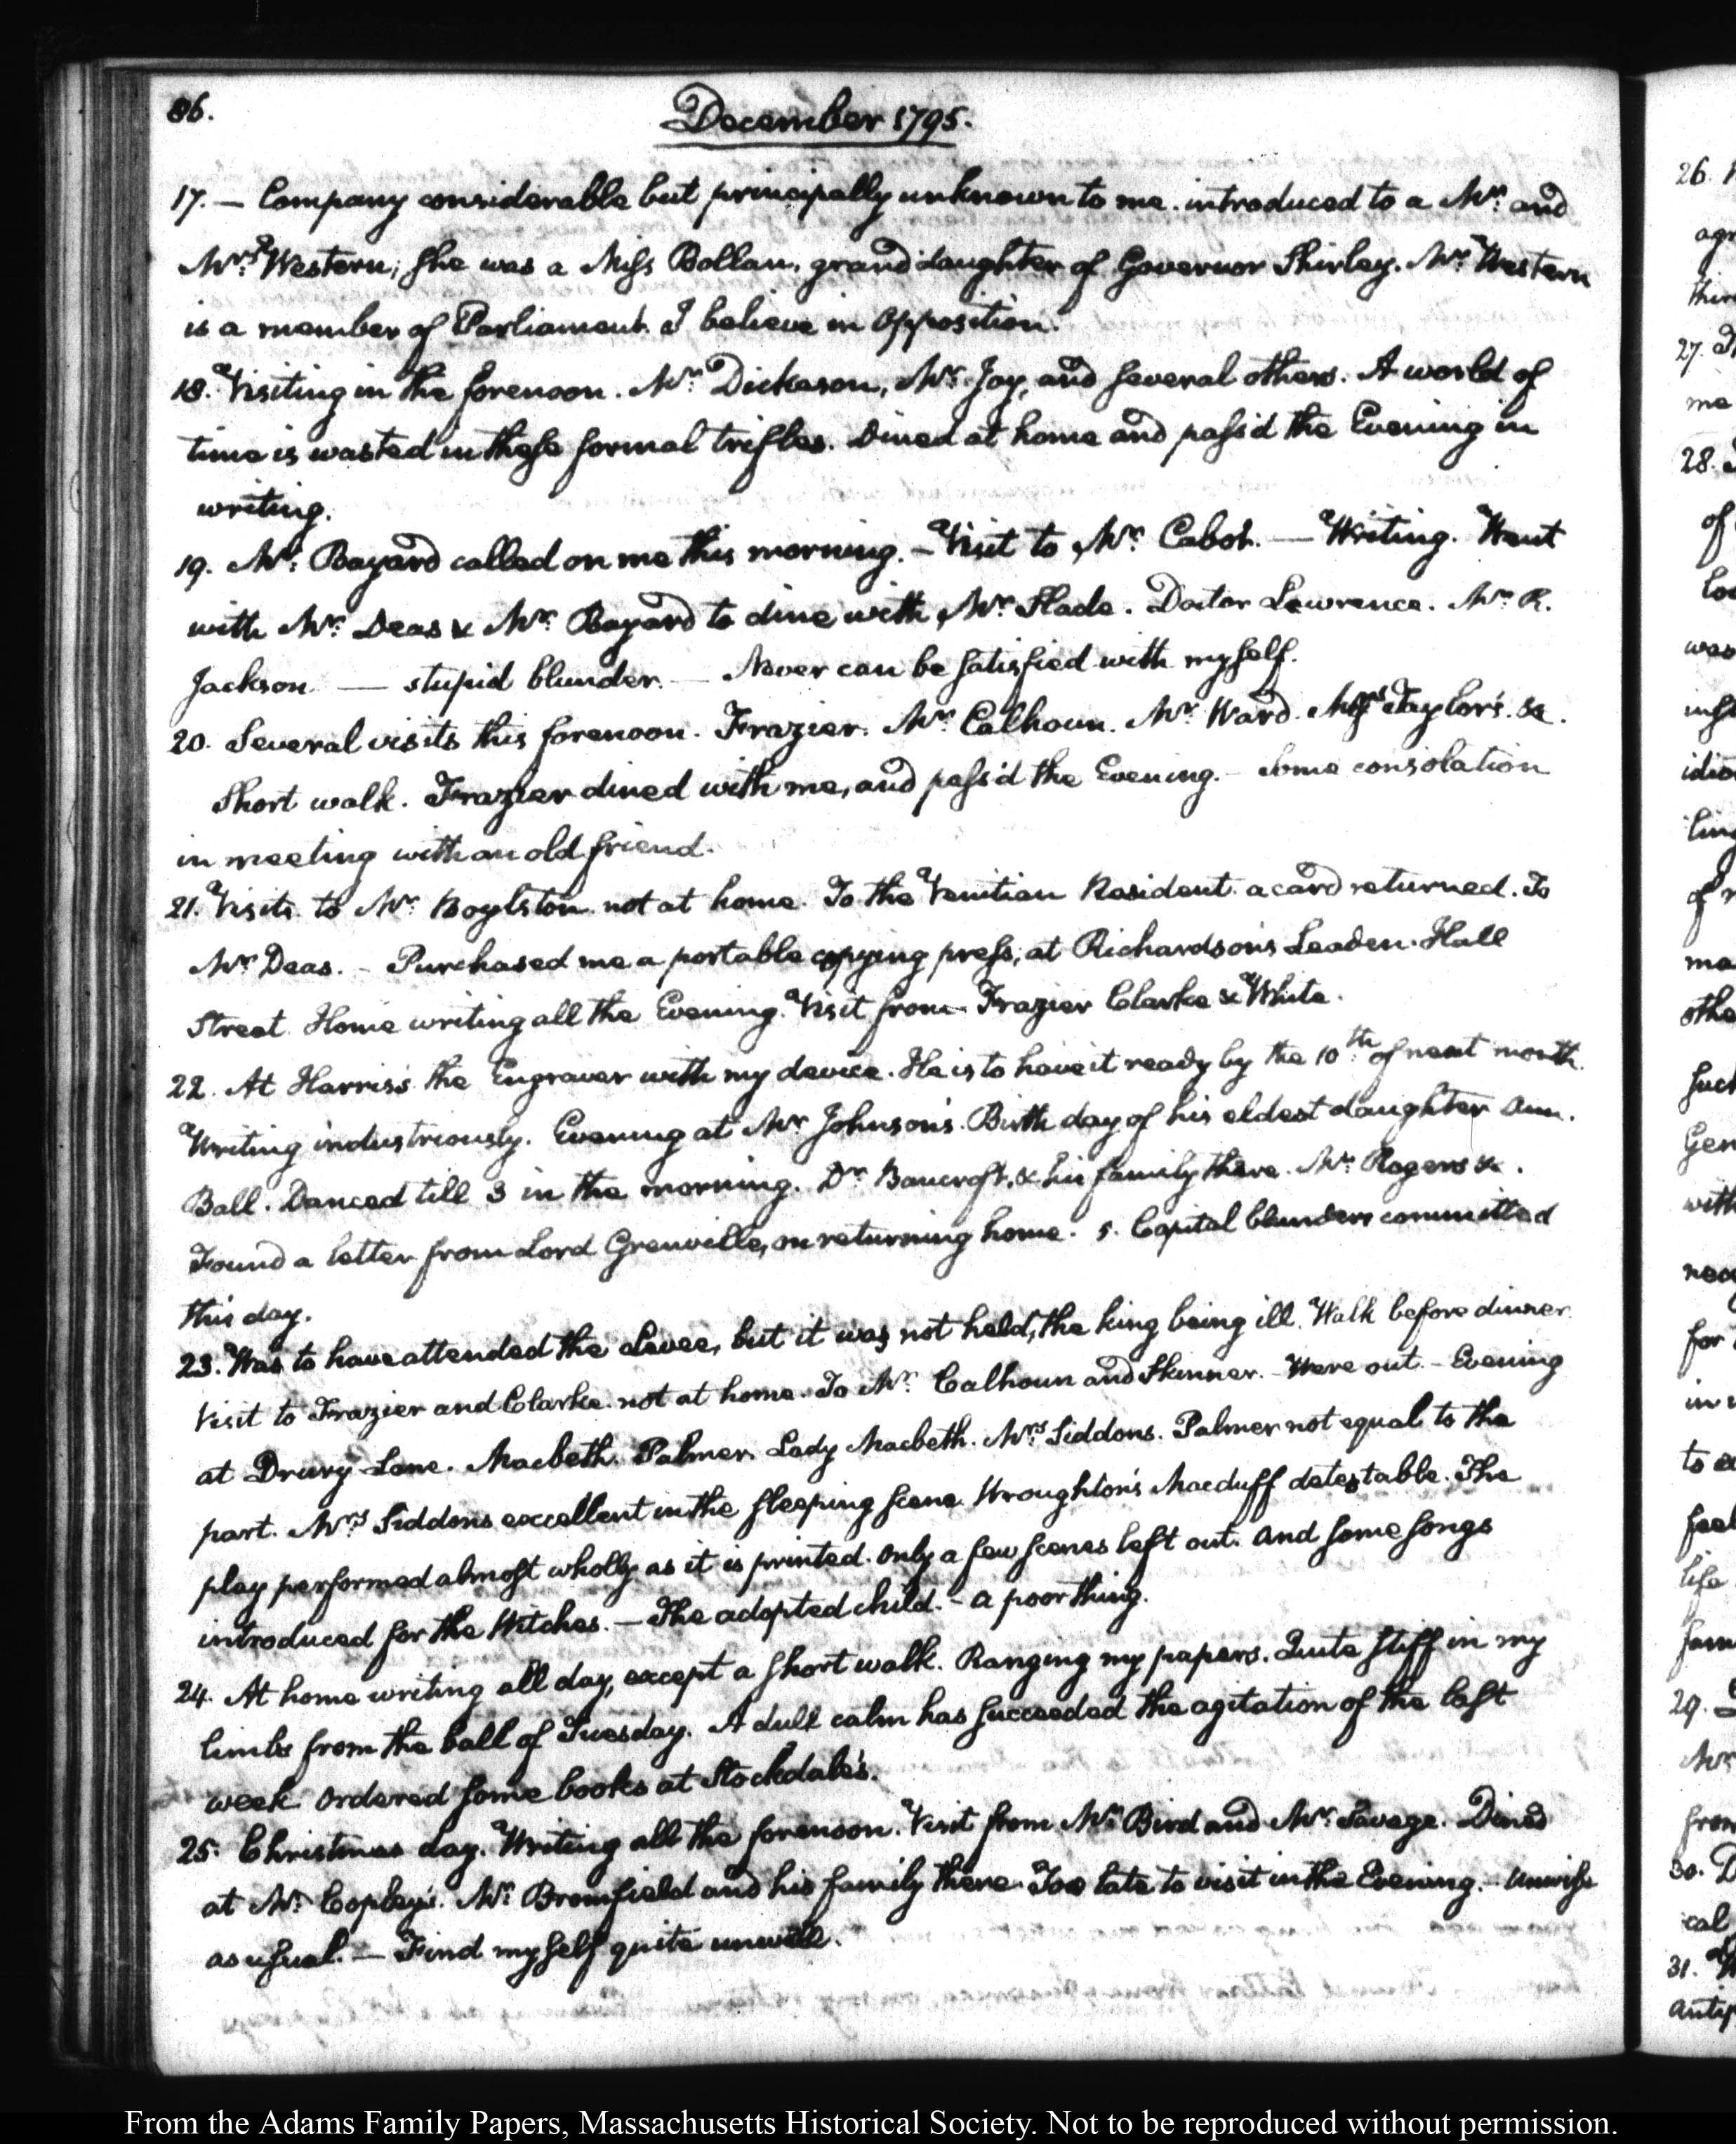 86.
December 1795.
17. — Company considerable but principally unknown to me. introduced to a Mr: and
Mrs: Western; she was a Miss Bollan, grand daughter of Governor Shirley. Mr: Western
is a member of Parliament. I believe in Opposition.
18. Visiting in the forenoon. Mr: Dickason, Mr: Joy, and several others. A world of
time is wasted in these formal trifles. Dined at home and pass'd the Evening in
writing.
19. Mr: Bayard called on me this morning. – Visit to Mr: Cabot. — Writing. Went
with Mr: Deas & Mr: Bayard to dine with Mr: Slade. Doctor Lawrence. Mr: R.
Jackson — stupid blunder. — Never can be satisfied with myself.
20. Several visits this forenoon. Frazier. Mr: Calhoun. Mr: Ward. Taylor's. &c.
Short walk. Frazier dined with me, and pass'd the Evening. – Some consolation
in meeting with an old friend.
21. Visits to Mr: Boylston. not at home. To the Venitian Resident. a card returned. To
Mr: Deas. – Purchased me a portable copying press, at Richardson's Leaden-Hall
Street. Home writing all the Evening. Visit from Frazier Clarke & White.
22. At Harris's the Engraver with my device. He is to have it ready by the 10th: of next month.
Writing industriously. Evening at Mr Johnson's. Birth day of his eldest daughter Ann.
Ball. Danced till 3 in the morning. Dr: Bancroft, & his family there. Mr: Rogers &c.
Found a letter from Lord Grenville, on returning home. 5. Capital blunders committed
this day.
23. Was to have attended the Levee, but it was not held, the king being ill. Walk before dinner.
Visit to Frazier and Clarke. not at home. To Mr: Calhoun and Skinner. – Were out. – Evening
at Drury-Lane. Macbeth. Palmer. Lady Macbeth. Mrs: Siddons. Palmer not equal to the
part. Mrs: Siddons excellent in the sleeping scene. Wroughton's Macduff detestable. The
play performed almost wholly as it is printed. Only a few scenes left out. and some songs
introduced for the Witches. — The adopted child. – a poor thing.
24. At home writing all day, except a short walk. Ranging my papers. Quite stiff in my
limbs from the ball of Tuesday. A dull calm has succeeded the agitation of the last
week. Ordered some books at Stockdale's.
25. Christmas day. Writing all the forenoon. Visit from Mr: Bird and Mr: Savage. Dined
at Mr: Copley's. Mr: Bromfield and his family there. Too late to visit in the Evening. – Unwise
as usual. — Find myself quite unwell.
26.
27.
me
28.
of
29.
30.
cal
31.
From the Adams Family Papers, Massachusetts Historical Society. Not to be reproduced without permission.